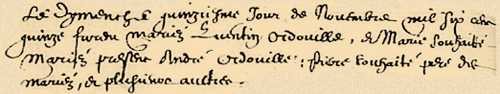 Le dymenche quinziesme Jour de Novembre mil six cens
quinze furent mariez Quentin Ordouille, et Marie Souhaité
Mariez présens André Ordouille: pierre Souhaité pere des
mariez, et plusieurs aultres.